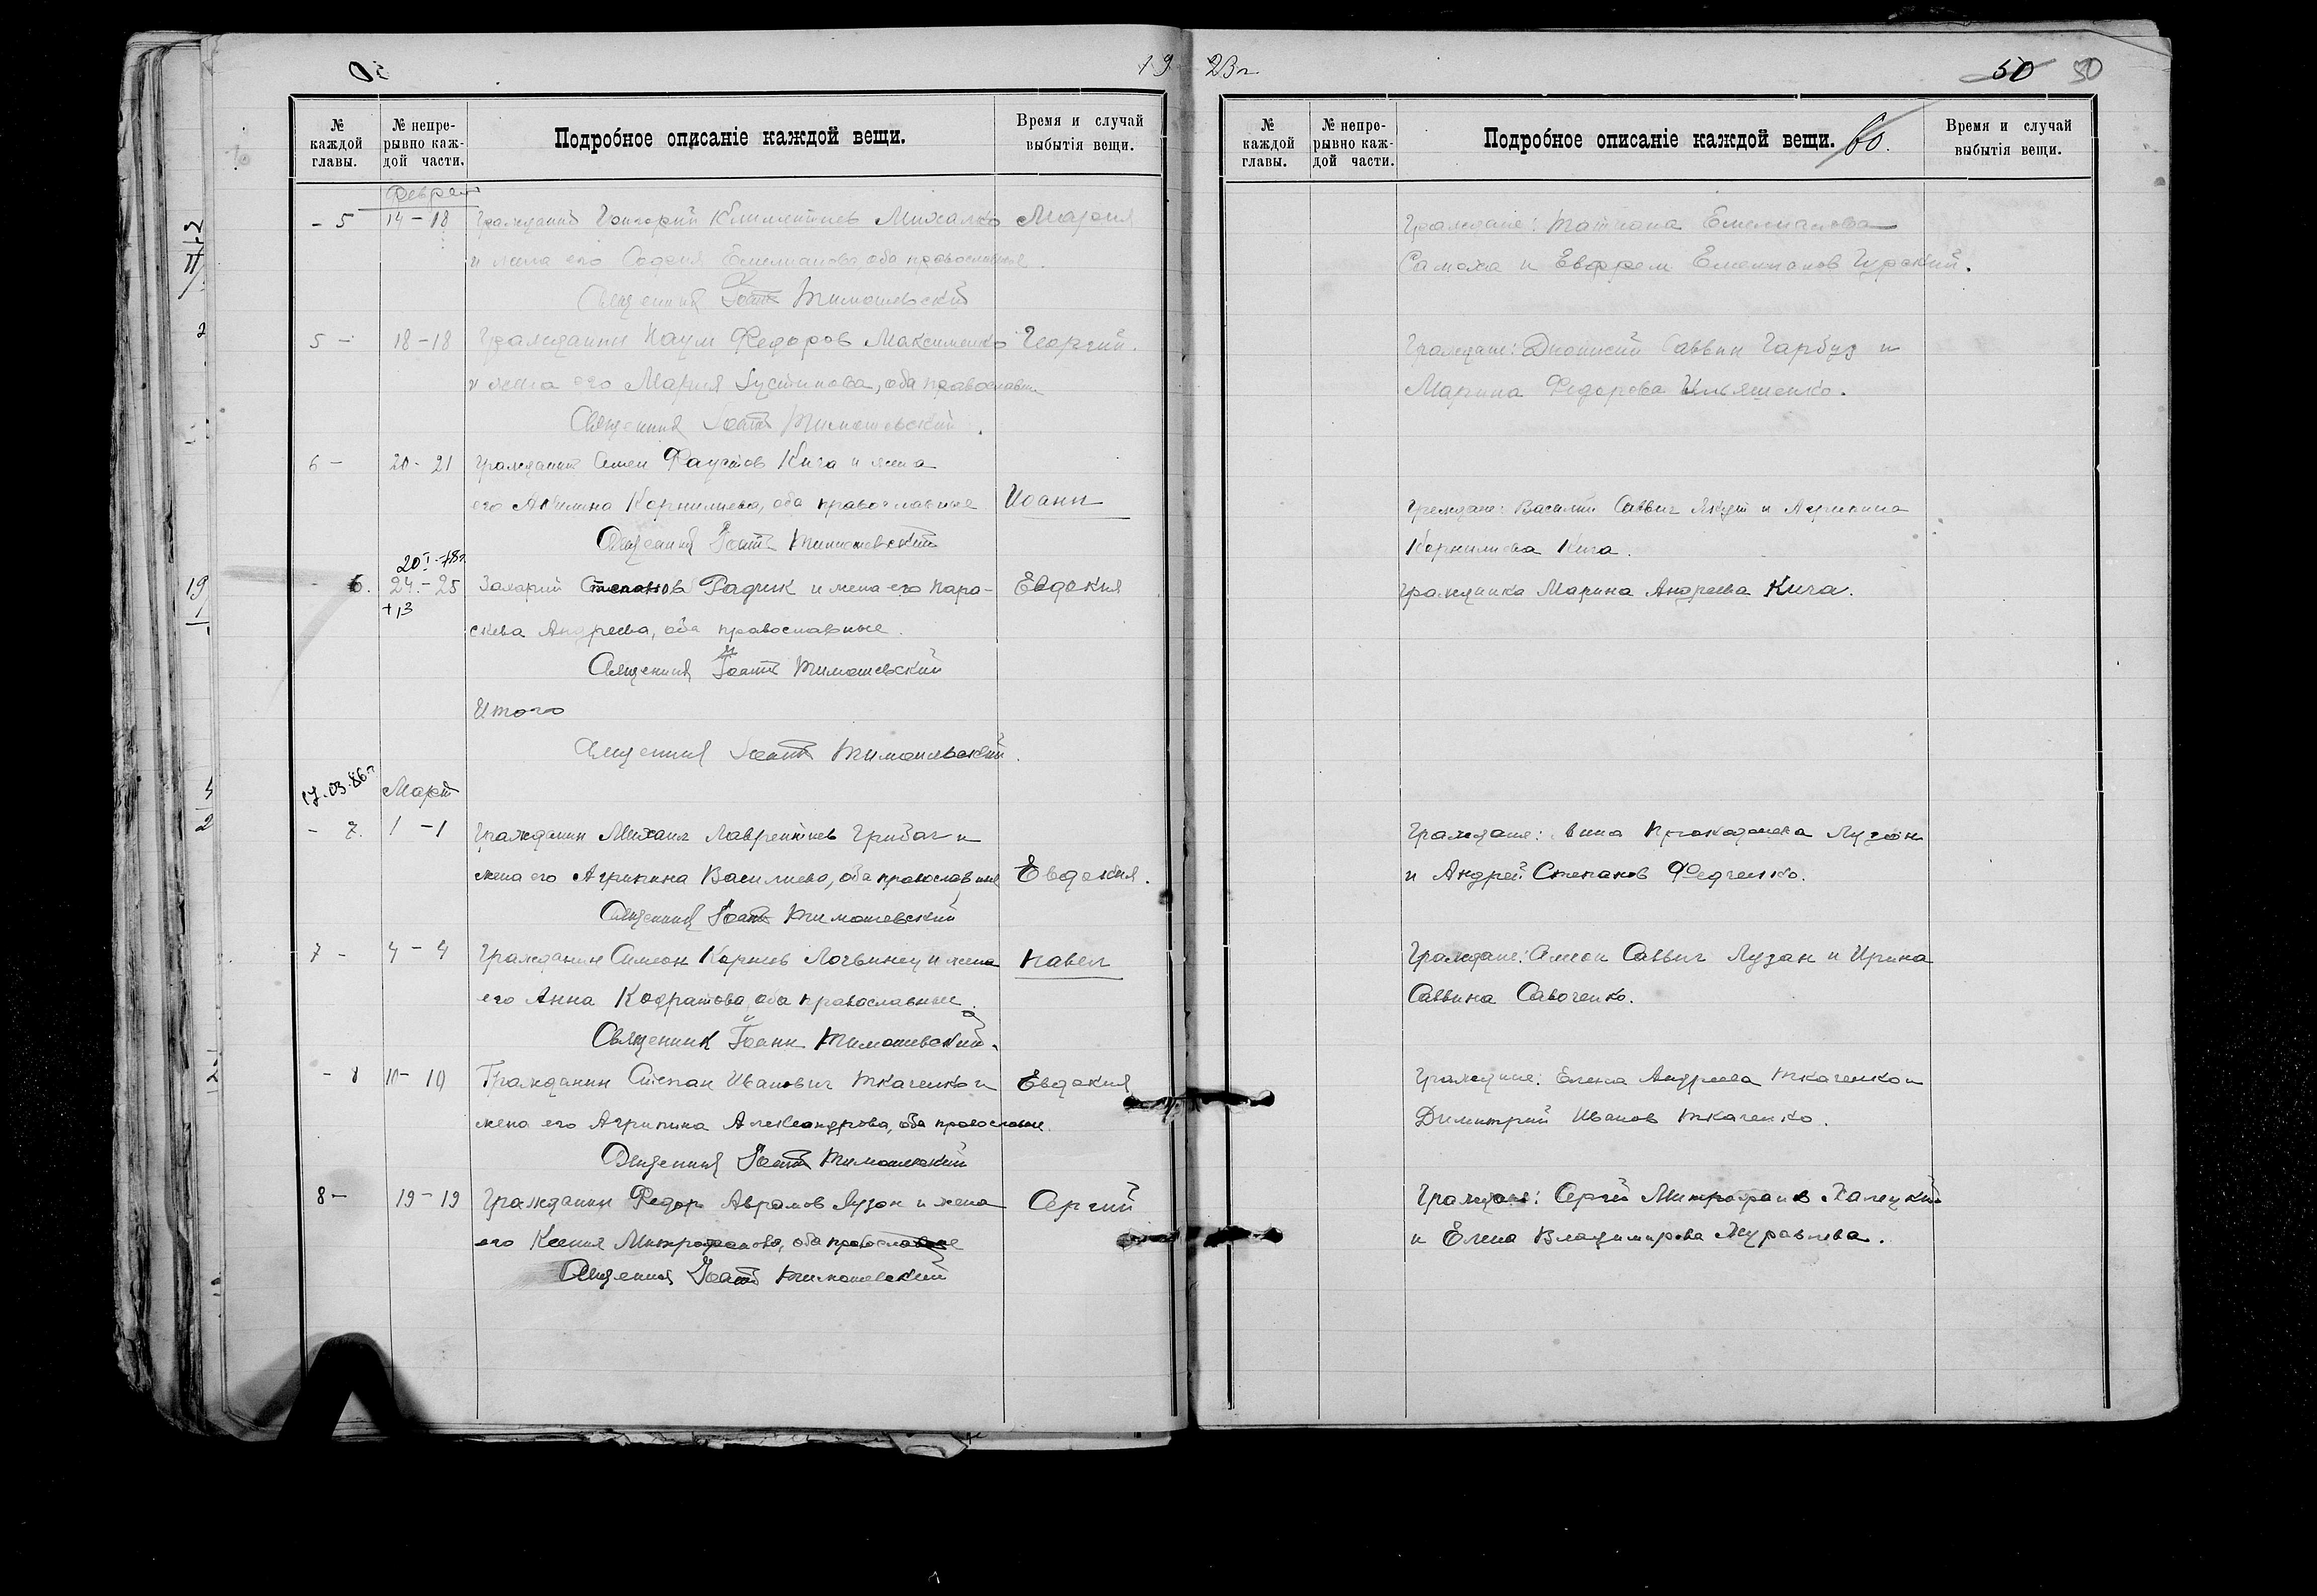 50
19
№ каждой главы.
№ непре-рывно каж-дой части.
Подробное описаніе каждой вещи.
Время и случай выбытія вещи.
Феврал
- 5 14-18 Гражданин Григорий Климентиев Михалко Мария
и жена его София Емелианова оба православные.
Священник Іоанн Тимошевский
5 - 18-18 Гражданин Наум Федоров Максименко Георгий.
и жена его Мария Іустинова, оба православн
Священник Іоанн Тимошевский.
6 - 20-21 Гражданин Симеон Фаустов Кига и жена
его Акилина Корнилиева, оба православные Иоанн
Священник Іоанн Тимошевский
- 6. 24.-25 Захарий Степанов Радчик и жена его Пара- Евдокия
+13
скева Андреева, оба православные.
Священник Іоанн Тимошевский
Итого
Священник Іоанн Тимошевский.
17.03.86г Март
- 7. 1-1 Гражданин Михаил Лаврентиев Грибач и
жена его Агрипина Василиева, оба православные Евдокия.
Священник Іоанн Тимошевский
7 - 4-4 Гражданин Симеон Корнев Логвинец и жена Павел
его Анна Кодратова, оба православные.
Священник Іоанн Тимошевский.
10-10 Гражданин Степан Иванович Ткаченко и Евдокия
жена его Агрипина Александрова, оба православные.
Священник Іоанн Тимошевский
8 - 19-19 Гражданин Федор Аврамов Лузан и жена Сергий
его Ксения Митрофанова, оба православные
Священник Іоанн Тимошевский
23г.
50 50
№ каждой главы.
№ непре-рывно каж-дой части.
Подробное описаніе каждой вещи. 60.
Время и случай выбытія вещи.
Граждане: Татиана Емелианова
и Ефрем Емелианов Гурский.
Граждане: Дионисий Саввич Гарбуз и
Марина Федорова Ильяшенко.
Граждане: Василий Саввич и Агрипина
Корнилиева Кига.
Гражданка Марина Андреева Кига.
Граждане: Лузан
и Андрей Степанов Федченко.
Граждане: Симеон Саввич Лузан и Ирина
Саввина Савоченко.
Граждане: Елена Андреева Ткаченко и
Димитрий Иванов Ткаченко.
Граждане: Сергей Митрофанов
и Елена Владимирова Журавлева.